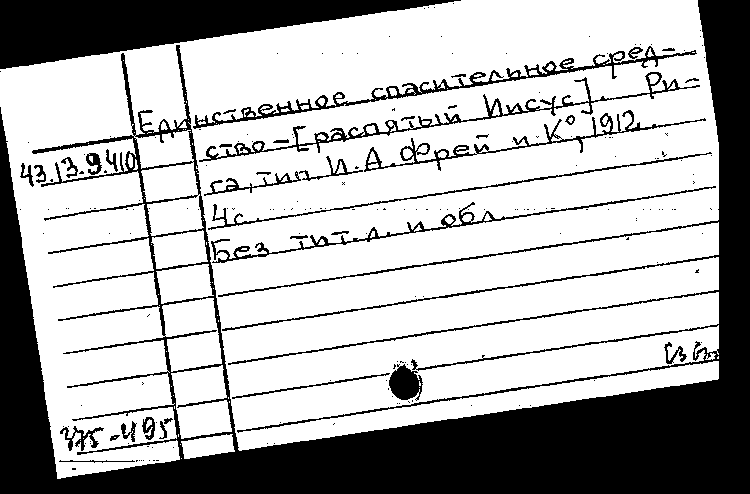 Единственное спасительное сред-
ство-[распятый Иисус]. Ри-
43.13.9.410
га, тип. И.А. Фрей и К°, 1912.
4с.
Без тит.л. и обл.
375-495